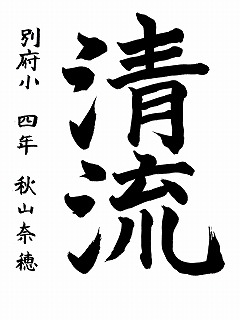 清流
別府小 四年 秋山奈穂